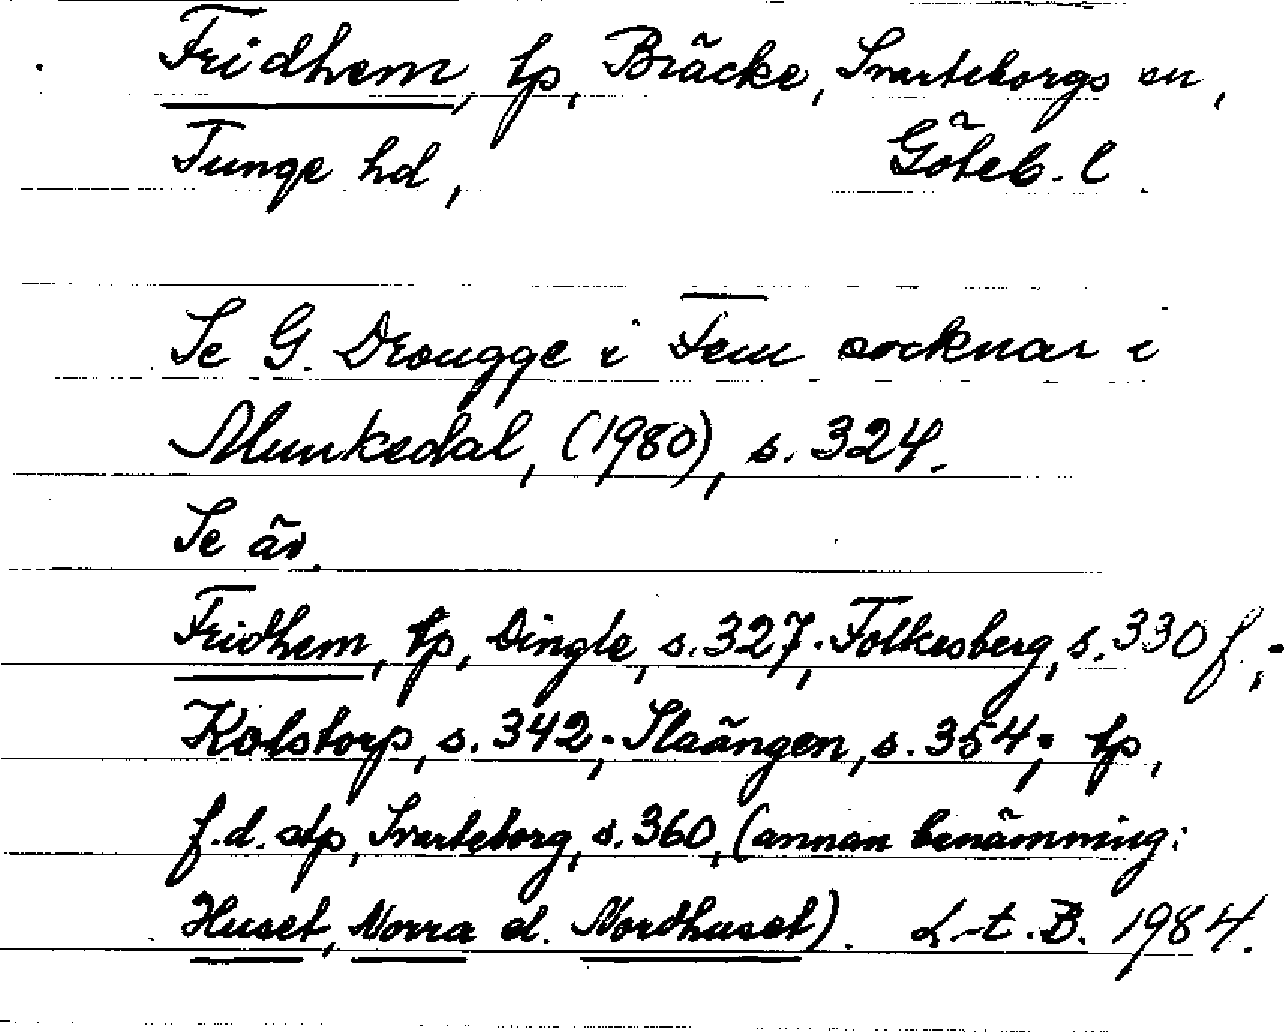 Fridhem, tp, Bräcke, Svarteborgs sn,
Tunge hd, Göteb. l.
Se G. Drougge i Fem socknar i
Munkedal, (1980), s. 324.
Se äv.
Fridhem, tp, Dingle, s. 327; Folkesberg, s. 330 f.;
Kolstorp, s. 342; Slaängen, s. 354; tp,
f.d. stp, Svarteborg, s. 360, (annan benämning:
Huset, Norra el. Nordhuset). L-t. B. 1984.